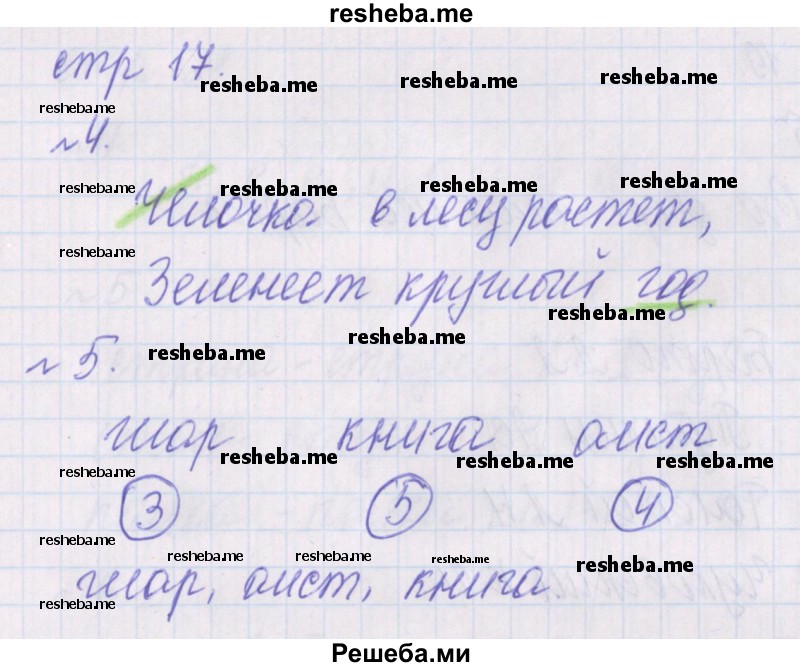 resheba.me
стр 17.
resheba.me resheba.me resheba.me
resheba.me
№4.
resheba.me resheba.me resheba.me resheba.me
Челочка в лесу растет,
resheba.me
Зеленеет круглый год.
resheba.me
resheba.me
№5. resheba.me
шар книга аист
resheba.me resheba.me resheba.me
resheba.me
3 5 4
resheba.me
resheba.me resheba.me resheba.me resheba.me
шар, аист, книга
resheba.me
Решеба.ми